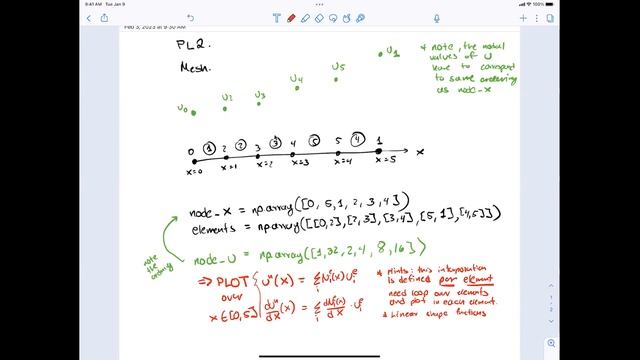 9:41 AM Tue Jan 9
100%
Feb 3, 2023 at 9:30 AM
PL2.
Mesh.
U0 U2 U3 U4 U5 U1
* note, the nodal
values of U
have to correspond
to same ordering
as node_x
0 1 2 2 3 3 4 5 5 4 1
x=0 x=1 x=2 x=3 x=4 x=5 x
node_x = np.array([0, 5, 1, 2, 3, 4])
elements = np.array([[0,2],[2,3],[3,4],[5,1],[4,5]])
note
the
ordering
node_U = np.array([1,32,2,4,8,16])
⇒ PLOT { uʰ(x) = Σᵢ Nᵢᵉ(x) Uᵢᵉ
over
x∈[0,5] duʰ/dx (x) = Σᵢ dNᵢᵉ(x)/dx · Uᵢᵉ
* Hints: this interpolation
is defined per element
need loop over elements
and plot in each element.
* Linear shape functions
1
2